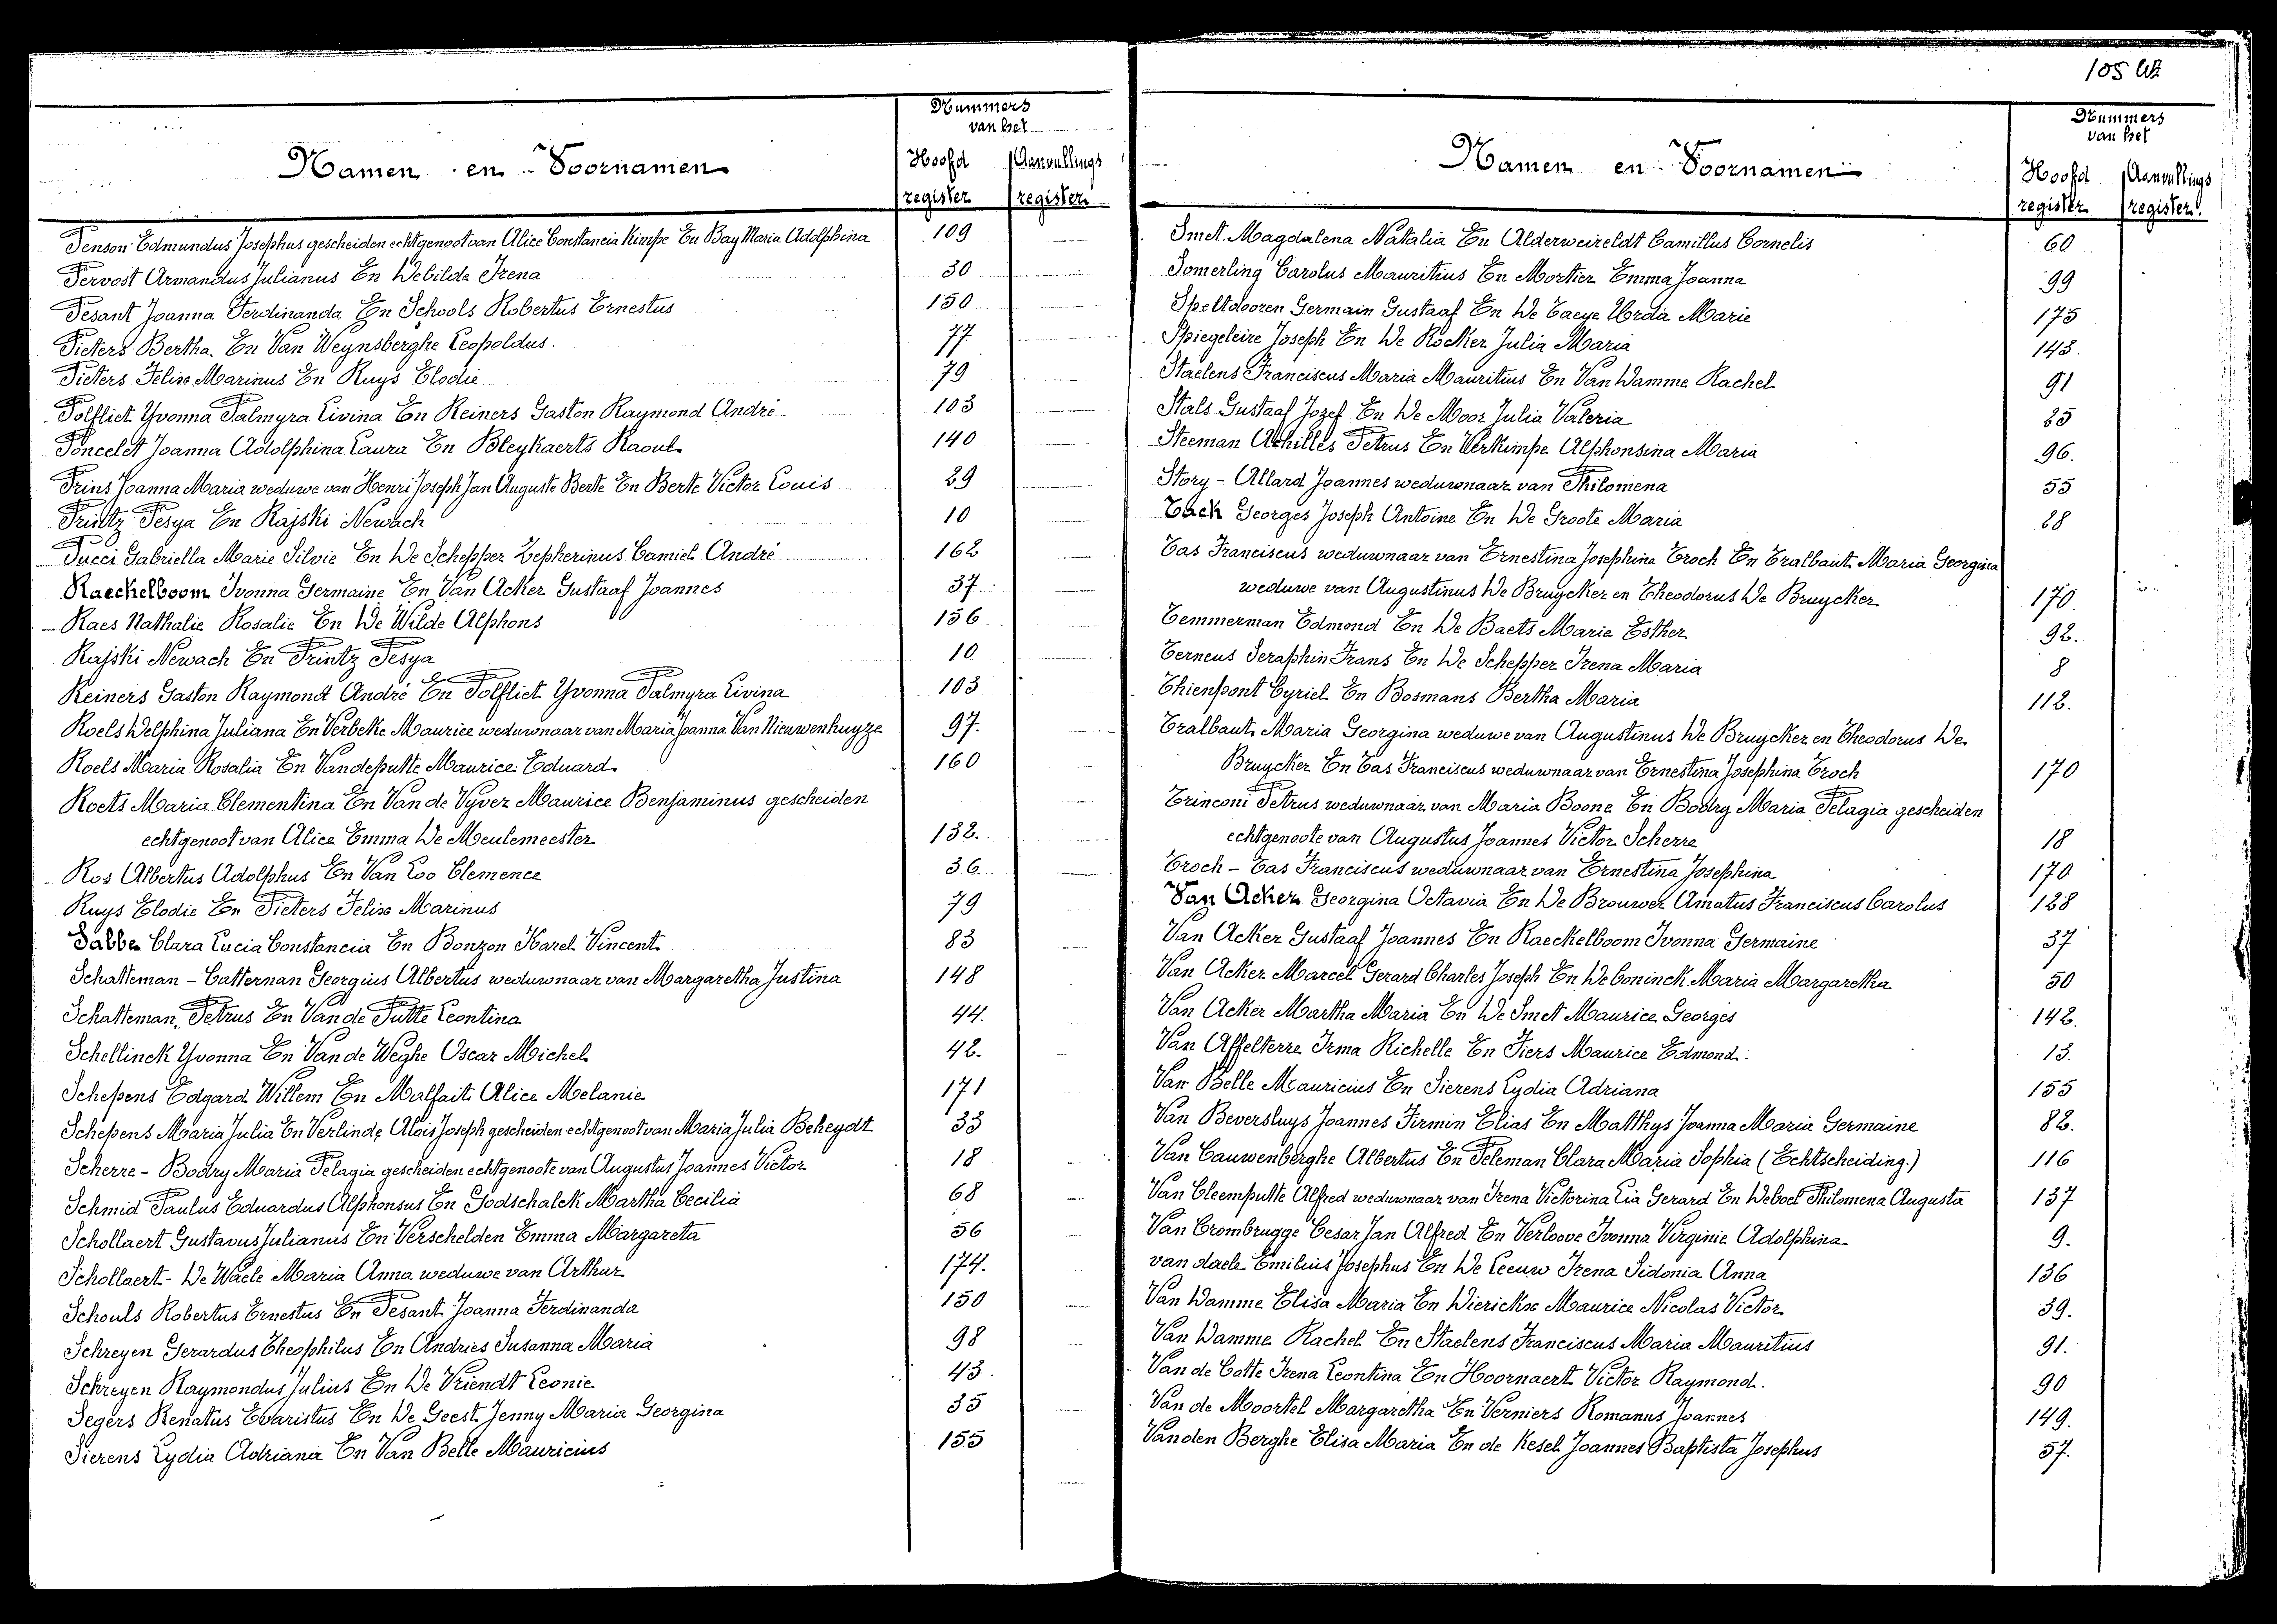 105 bis
Nummers
van het
Namen en Voornamen
Hoofd
register
Aanvullings
register
Penson Edmundus Josephus gescheiden echtgenoot van Alice Constancia Kimpe En Bay Maria Adolphina 109
Pervost Armandus Julianus En Debilde Irena 30
Pesant Joanna Ferdinanda En Schouls Robertus Ernestus 150
Pieters Bertha En Van Weynsberghe Leopoldus. 77
Pieters Felix Marinus En Ruys Elodie 79
Polfliet Yvonna Palmyra Livina En Reiners Gaston Raymond André 103
Poncelet Joanna Adolphina Laura En Bleykaerts Raoul 140
Prins Joanna Maria weduwe van Henri Joseph Jan Auguste Berte En Berte Victor Louis 29
Printz Pesya En Rajski Newach 10
Pucci Gabriella Marie Silvie En De Schepper Zepherinus Camiel André 162
Raeckelboom Ivonna Germaine En Van Acker Gustaaf Joannes 37.
Raes Nathalie Rosalie En De Wilde Alphons 156
Rajski Newach En Printz Pesya 10
Reiners Gaston Raymond André En Polfliet Yvonna Palmyra Livina 103
Roels Delphina Juliana En Verbeke Maurice weduwnaar van Maria Joanna Van Nieuwenhuyze 97.
Roels Maria Rosalia En Vandeputte Maurice Eduard 160
Roets Maria Clementina En Van de Vyver Maurice Benjaminus gescheiden
echtgenoot van Alice Emma De Meulemeester 132.
Ros Albertus Adolphus En Van Loo Clemence 36
Ruys Elodie En Pieters Felix Marinus 79
Sabbe Clara Lucia Constancia En Bonzon Karel Vincent 83
Schatteman - Catternan Georgius Albertus weduwnaar van Margaretha Justina 148
Schatteman Petrus En Van de Putte Leontina 44.
Schellinck Yvonna En Van de Weghe Oscar Michel 42.
Schepens Edgard Willem En Malfait Alice Melanie 171
Schepens Maria Julia En Verlinde Alois Joseph gescheiden echtgenoot van Maria Julia Beheydt 33
Scherre - Bodry Maria Pelagia gescheiden echtgenoote van Augustus Joannes Victor 18
Schmid Paulus Eduardus Alphonsus En Godschalck Martha Cecilia 68
Schollaert Gustavus Julianus En Verschelden Emma Margareta 56
Schollaert - De Waele Maria Anna weduwe van Arthur 174.
Schouls Robertus Ernestus En Pesant Joanna Ferdinanda 150
Schreyen Gerardus Theophilus En Andries Susanna Maria 98
Schreyen Raymondus Julius En De Vriendt Leonie 43.
Segers Renatus Evaristus En De Geest Jenny Maria Georgina 35
Sierens Lydia Adriana En Van Belle Mauricius 155
Nummers
van het
Namen en Voornamen
Hoofd
register
Aanvullings
register
Smet Magdalena Natalia En Alderweireldt Camillus Cornelis 60
Somerling Carolus Mauritius En Mortier Emma Joanna 99
Speltdooren Germain Gustaaf En De Caeye Urda Marie 175
Spiegeleire Joseph En De Rocker Julia Maria 143.
Staelens Franciscus Maria Mauritius En Van Damme Rachel 91
Stals Gustaaf Jozef En De Moor Julia Valeria 25
Steeman Achilles Petrus En Verkimpe Alphonsina Maria 96.
Story - Allard Joannes weduwnaar van Philomena 55
Tack Georges Joseph Antoine En De Groote Maria 28
Tas Franciscus weduwnaar van Ernestina Josephina Troch En Tralbaut Maria Georgina
weduwe van Augustinus De Bruycker en Theodorus De Bruycker 170.
Temmerman Edmond En De Baets Marie Esther 92.
Terneus Seraphin Frans En De Schepper Irena Maria 8
Thienpont Cyriel En Bosmans Bertha Maria 112.
Tralbaut Maria Georgina weduwe van Augustinus De Bruycker en Theodorus De
Bruycker En Tas Franciscus weduwnaar van Ernestina Josephina Troch 170
Trinconi Petrus weduwnaar van Maria Boone En Bodry Maria Pelagia gescheiden
echtgenoote van Augustus Joannes Victor Scherre 18
Troch - Tas Franciscus weduwnaar van Ernestina Josephina 170
Van Acker Georgina Octavia En De Brouwer Amatus Franciscus Carolus 128
Van Acker Gustaaf Joannes En Raeckelboom Ivonna Germaine 37
Van Acker Marcel Gerard Charles Joseph En De Coninck Maria Margaretha 50
Van Acker Martha Maria En De Smet Maurice Georges 142.
Van Affelterre Irma Richelle En Fiers Maurice Edmond. 13.
Van Belle Mauricius En Sierens Lydia Adriana 155
Van Beversluys Joannes Firmin Elias En Matthys Joanna Maria Germaine 82.
Van Cauwenberghe Albertus En Peleman Clara Maria Sophia (Echtscheiding.) 116
Van Cleemputte Alfred weduwnaar van Irena Victorina Lia Gerard En Deboel Philomena Augusta 137
Van Crombrugge Cesar Jan Alfred En Verloove Ivonna Virginie Adolphina 9.
van daele Emilius Josephus En De Leeuw Irena Sidonia Anna 136
Van Damme Elisa Maria En Dierickx Maurice Nicolas Victor 39.
Van Damme Rachel En Staelens Franciscus Maria Mauritius 91.
Van de Cotte Irena Leontina En Hoornaert Victor Raymond. 90
Van de Moortel Margaretha En Verniers Romanus Joannes 149.
Van den Berghe Elisa Maria En de Kesel Joannes Baptista Josephus 57.